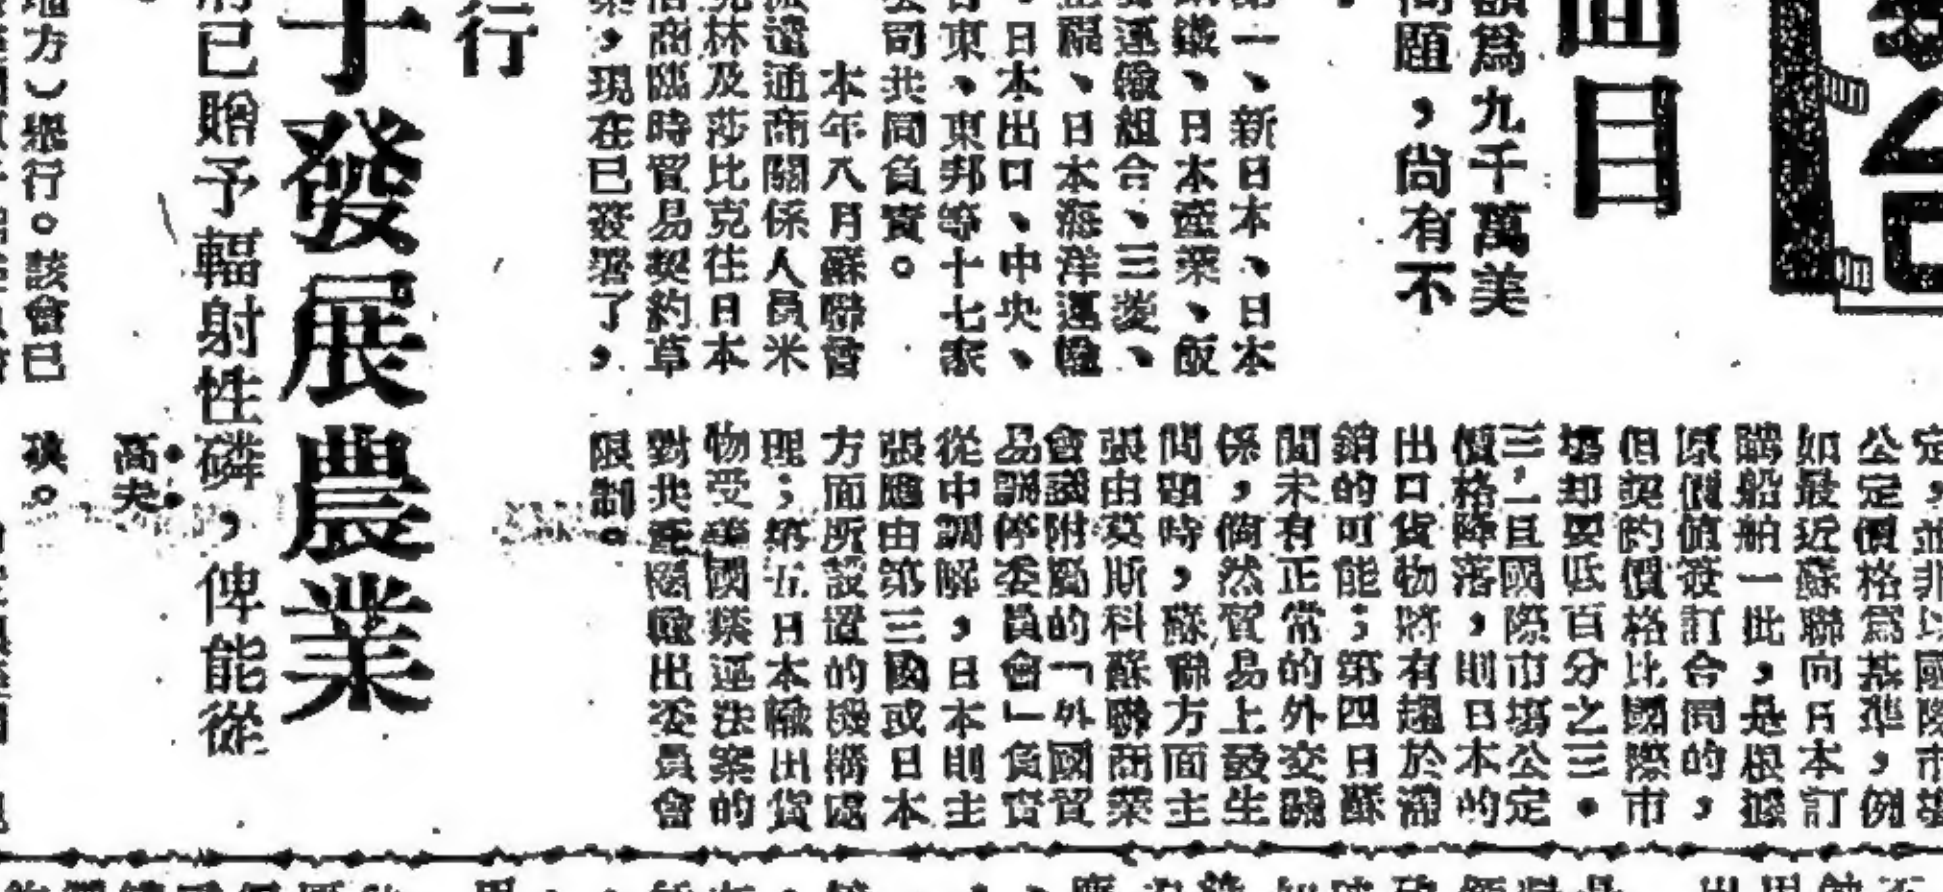 面目
額爲九千萬美
問題，尙有不
第一、新日本、日本
鋼鐵、日本產業、飯
運輸組合、三菱、
日本海洋運輸
、日本出口、中央、
東、東邦等十七家
公司共同負責。
本年八月蘇聯曾
派遣通商關係人員米
克林及莎比克往日本
洽商臨時貿易契約草
案，現在已簽署了，
定，並非以國際市場
公定價格爲基準，例
如最近蘇聯向日本訂
購船舶一批，是根據
原價值簽訂合同的，
但契約價格比國際市
場却要低百分之三。
三，一旦國際市場公定
價格降落，則日本的
出口貨物將有趨於滯
銷的可能；第四日蘇
間未有正常的外交關
係，倘然貿易上發生
問題時，蘇聯方面主
張由莫斯科蘇聯商業
會議附屬的「外國貿
易調停委員會」負責
從中調解，日本則主
張應由第三國或日本
方面所設置的機構處
理；第五日本輸出貨
物受美國禁運法案的
對共產國輸出委員會
限制。
行
子發展農業
府已贈予輻射性磷，俾能從
方）舉行。該會已